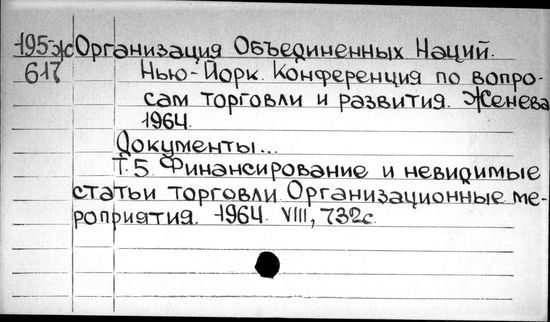 195-ж Организация Объединенных Наций.
617 Нью-Йорк. Конференция по вопро-
сам торговли и развития. Женева
1964.
Документы...
Т.5. Финансирование и невидимые
статьи торговли. Организационные ме-
роприятия. 1964. VIII, 732с.